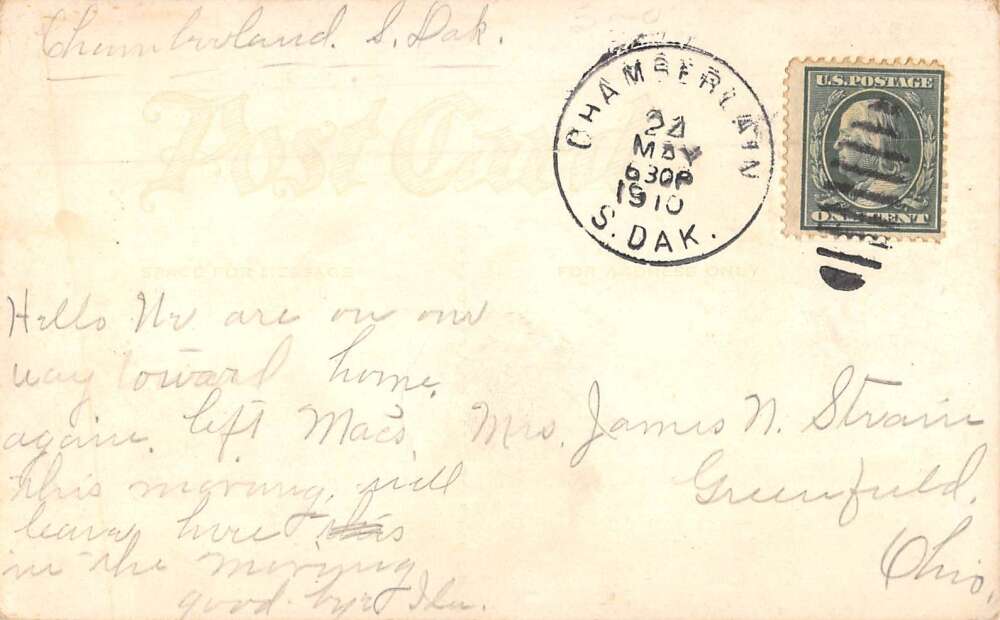 Chamberland. S. Dak.
Post Card
CHAMBERLAIN
24
MAY
630P
1910
S. DAK.
U.S. POSTAGE
ONE CENT
SPACE FOR MESSAGE
FOR ADDRESS ONLY
Hello We are on our
way toward home.
again. left Mac's
this morning. will
leave here this
in the morning
good bye Ida.
Mrs. James N. Strain
Greenfield.
Ohio.